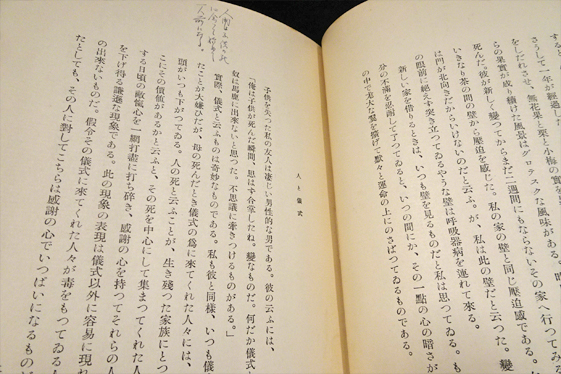 さうして一年が經過し
をしたれさせ、無花果と栗と小梅の實を
らの果實が成り續けた風景はグロテスクな風味がある。
死んだ。彼が新しく變つてからまだ二週間にもならないその家へ行つてみる
いきなり茶の間の壁から壓迫を感じた。私の家の壁と同じ壓迫感である。
は門が北向きだからいけないのだと云ふ。が、私は此の壁だと云つた。變
の眼前に絶えず突き立つてゐるやうな壁は呼吸器病を連れて來る。も
新しい家を借りるときは、いつも壁を見るものだと私は思つてゐる。
分の不滿を忍耐して了つてゐると、いつの間にか、その一點の心の暗さが
の中で尨大な翼を擴げて默々と運命の上にのさばつてゐるものである。
人と儀式
子供を失つた私の友人は凄じい男性的な男である。彼の云ふには、
「俺は子供が死んだ瞬間、思はす合掌したね。變なものだ。何だか儀式
奴は馬鹿に出來ないと思つた。不思議に牽きつけるものがある。」
實際、儀式と云ふものは奇妙なものである。私も彼と同樣、いつも儀
たことが大嫌ひだが、母の死んだとき儀式の爲に來てくれた人々には、
頭がいつも下がつてゐる。人の死と云ふことが、生き殘つた家族にとつ
こにその價値があるかと云ふと、その死を中心にして集まつてくれた人
する日頃の敵愾心を一網打盡に打ち碎き、感謝の心を持つてそれらの人
を下げ得る謙遜な現象である。此の現象の表現は儀式以外に容易に現れ
の出來ないものだ。假令その儀式に來てくれた人々が毒をもつてゐる人
たとしても、その人に對してこちらは感謝の心でいつぱいになるもの